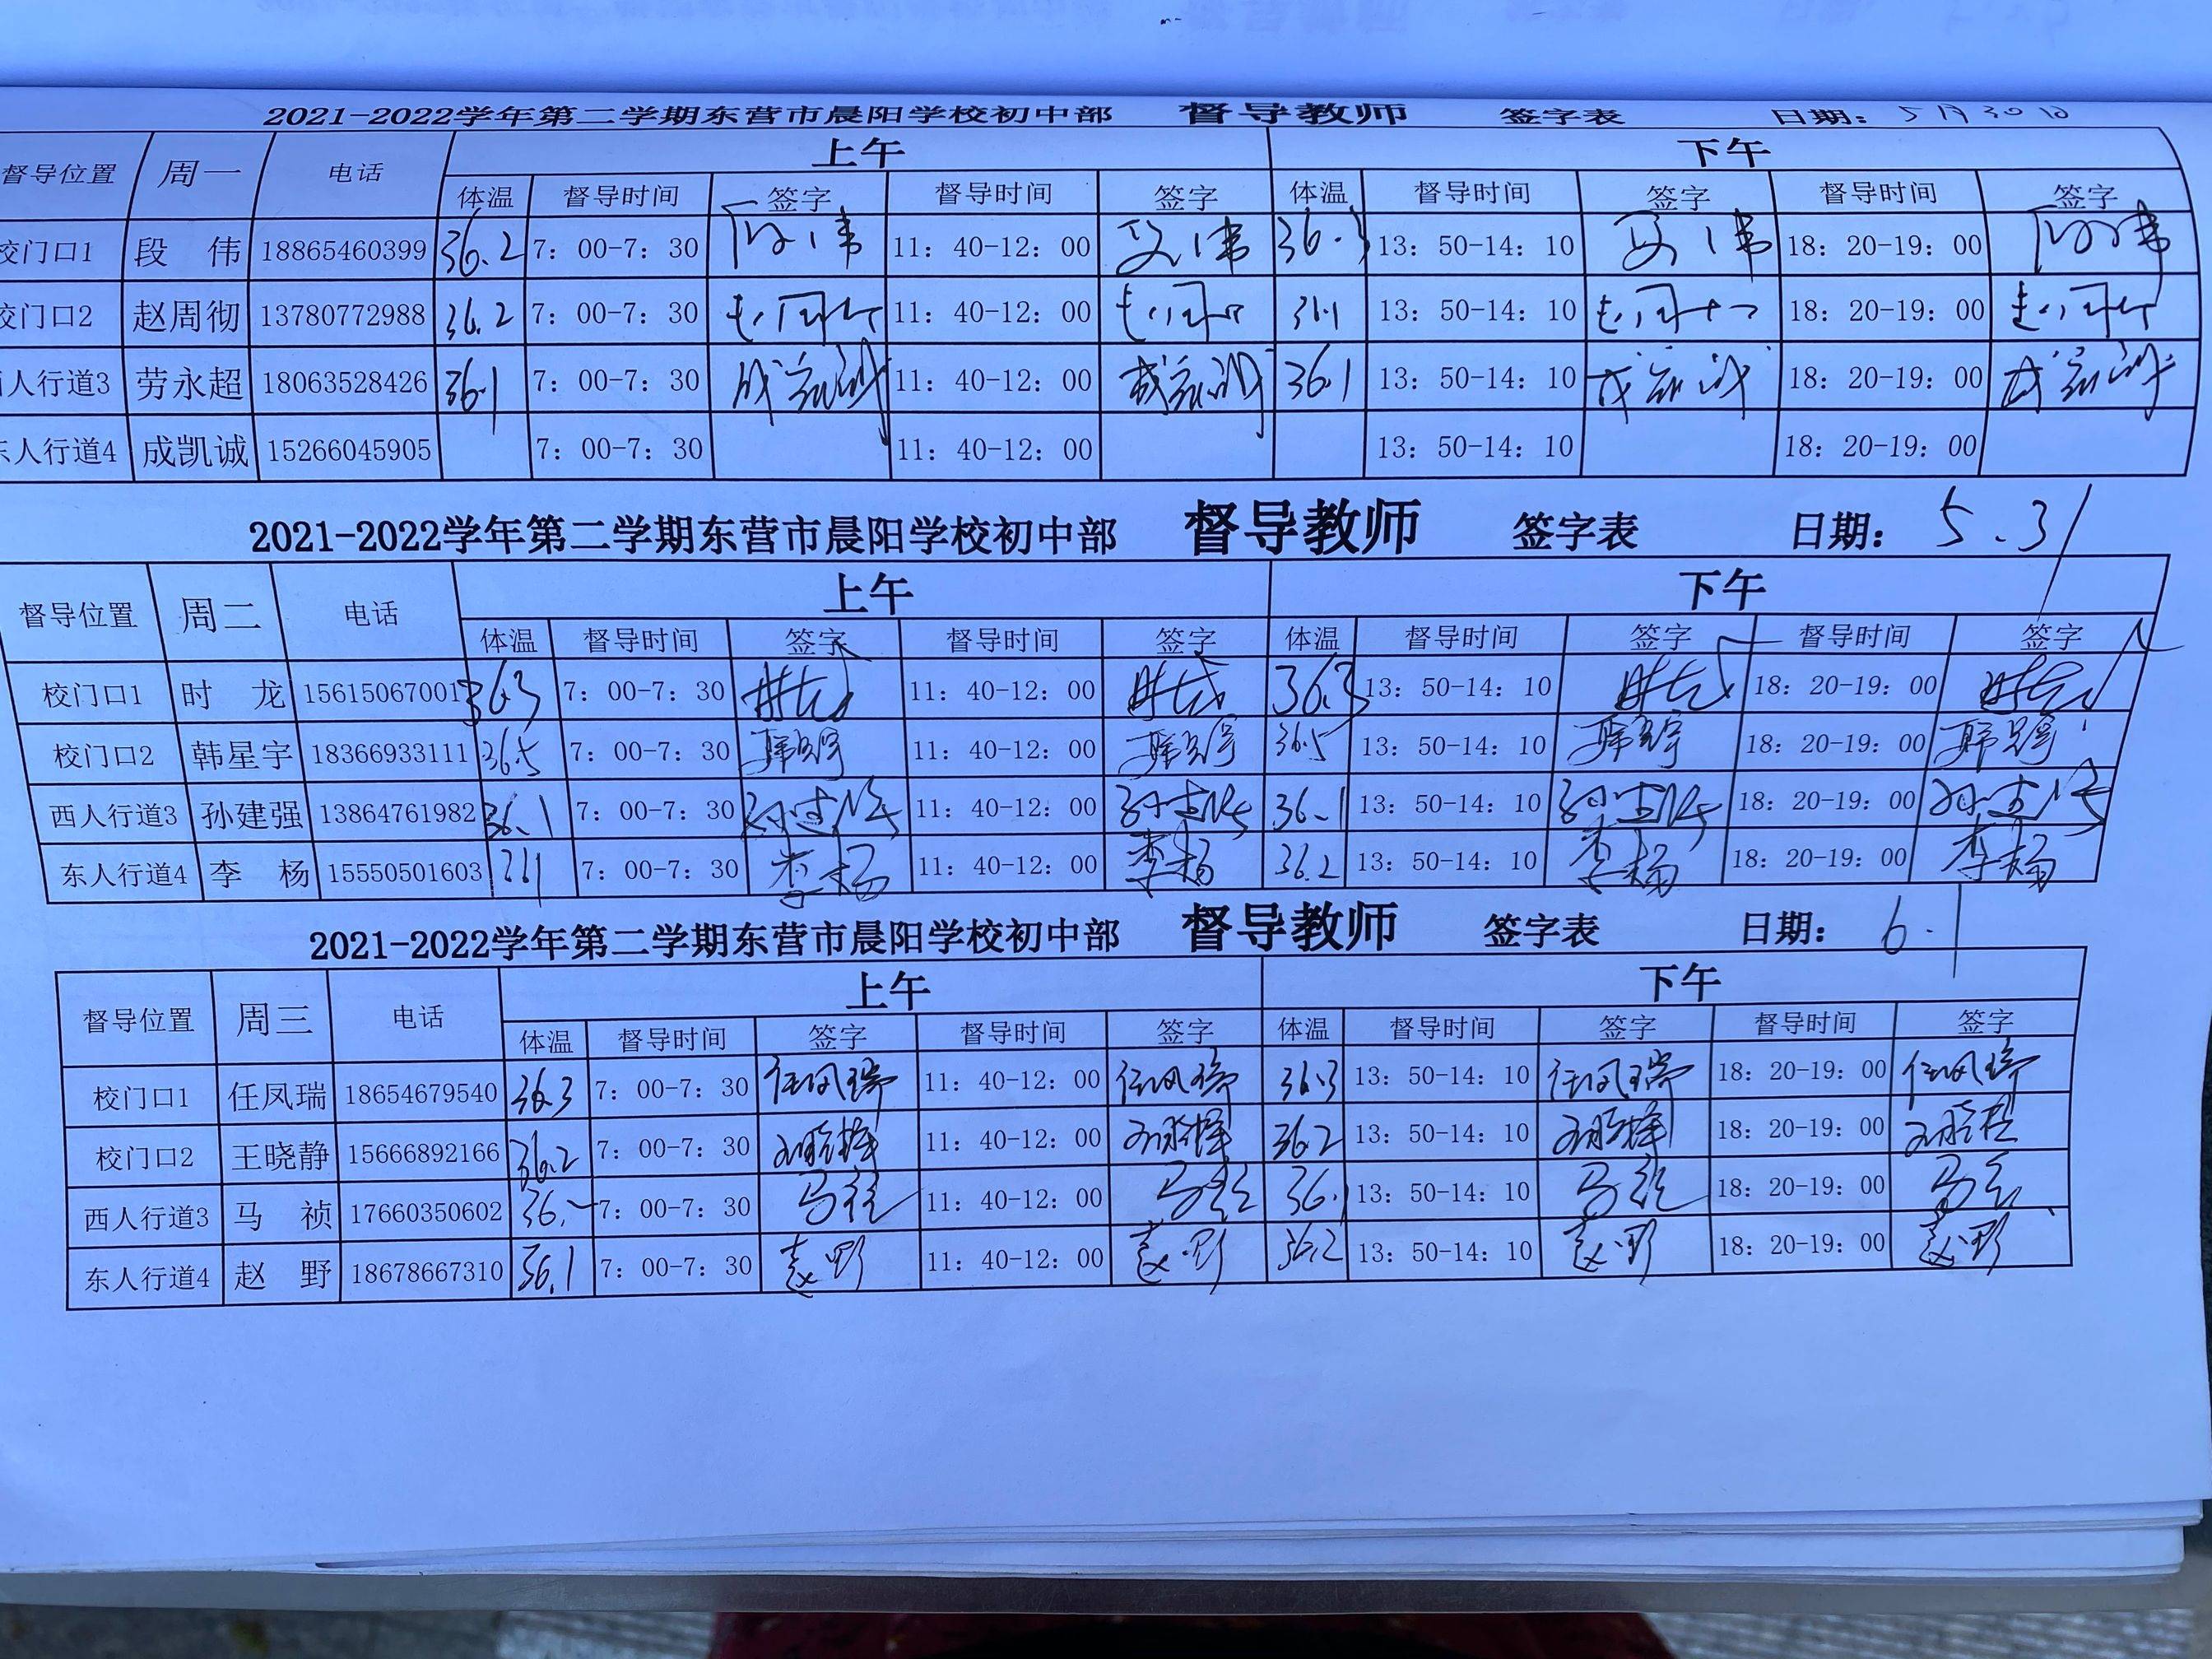 2021-2022学年第二学期东营市晨阳学校初中部 督导教师 签字表 日期: 5月30日
督导位置 周一 电话 上午 下午
体温 督导时间 签字 督导时间 签字 体温 督导时间 签字 督导时间 签字
校门口1 段 伟 18865460399 36.2 7: 00-7: 30 段伟 11: 40-12: 00 段伟 36.3 13: 50-14: 10 段伟 18: 20-19: 00 段伟
校门口2 赵周彻 13780772988 36.2 7: 00-7: 30 11: 40-12: 00 13: 50-14: 10 18: 20-19: 00
西人行道3 劳永超 18063528426 36.1 7: 00-7: 30 成凯诚 11: 40-12: 00 成凯诚 36.1 13: 50-14: 10 成凯诚 18: 20-19: 00 成凯诚
东人行道4 成凯诚 15266045905 7: 00-7: 30 11: 40-12: 00 13: 50-14: 10 18: 20-19: 00
2021-2022学年第二学期东营市晨阳学校初中部 督导教师 签字表 日期: 5.31
督导位置 周二 电话 上午 下午
体温 督导时间 签字 督导时间 签字 体温 督导时间 签字 督导时间 签字
校门口1 时 龙 15615067001 36.3 7: 00-7: 30 时龙 11: 40-12: 00 时龙 36.3 13: 50-14: 10 时龙 18: 20-19: 00 时龙
校门口2 韩星宇 18366933111 36.5 7: 00-7: 30 韩星宇 11: 40-12: 00 韩星宇 36.5 13: 50-14: 10 韩星宇 18: 20-19: 00 韩星宇
西人行道3 孙建强 13864761982 36.1 7: 00-7: 30 孙建强 11: 40-12: 00 孙建强 36.1 13: 50-14: 10 孙建强 18: 20-19: 00 孙建强
东人行道4 李 杨 15550501603 7: 00-7: 30 李杨 11: 40-12: 00 李杨 36.2 13: 50-14: 10 李杨 18: 20-19: 00 李杨
2021-2022学年第二学期东营市晨阳学校初中部 督导教师 签字表 日期: 6.1
督导位置 周三 电话 上午 下午
体温 督导时间 签字 督导时间 签字 体温 督导时间 签字 督导时间 签字
校门口1 任凤瑞 18654679540 36.3 7: 00-7: 30 任凤瑞 11: 40-12: 00 任凤瑞 36.3 13: 50-14: 10 任凤瑞 18: 20-19: 00 任凤瑞
校门口2 王晓静 15666892166 36.2 7: 00-7: 30 11: 40-12: 00 36.2 13: 50-14: 10 18: 20-19: 00
西人行道3 马 祯 17660350602 7: 00-7: 30 马祯 11: 40-12: 00 马祯 36.1 13: 50-14: 10 马祯 18: 20-19: 00 马祯
东人行道4 赵 野 18678667310 36.1 7: 00-7: 30 赵野 11: 40-12: 00 赵野 36.2 13: 50-14: 10 赵野 18: 20-19: 00 赵野